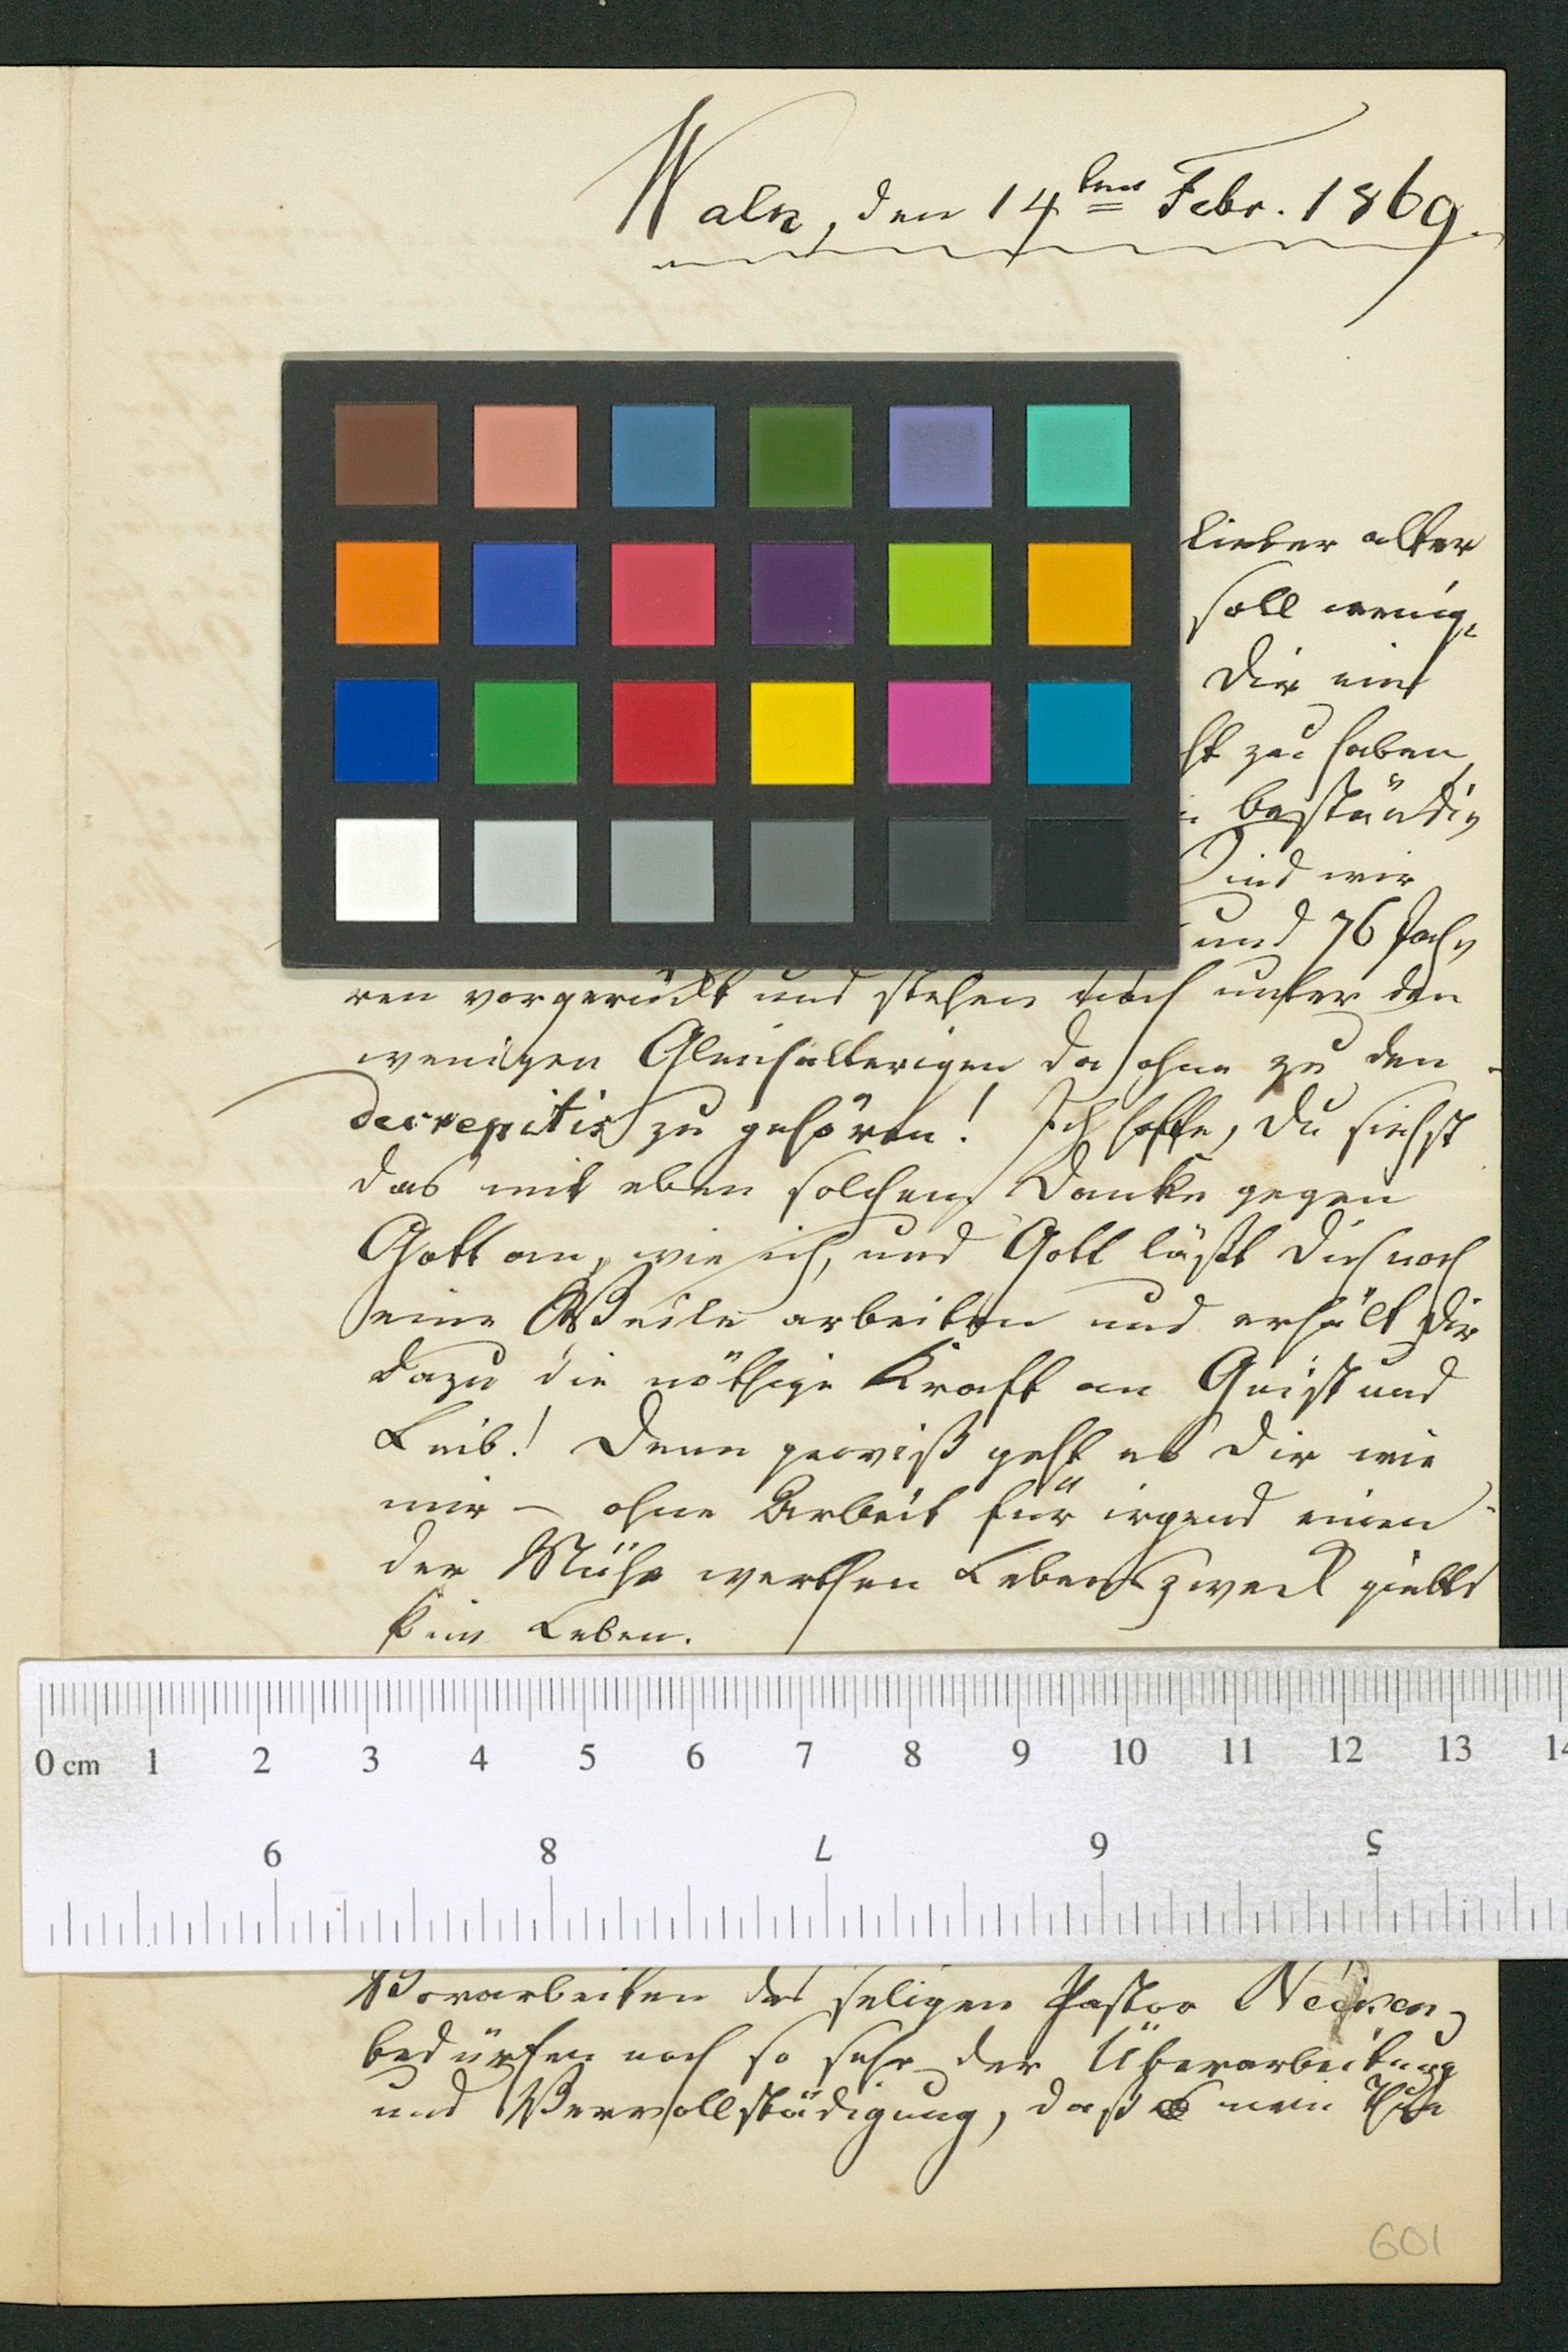 Walk, den 14ten Febr. 1869.
Lieber alter
soll wenig-
Dir eins
ht zu haben,
beständig
Sind wir
und 76 Jah-
ren vorgerückt und stehen noch unter den
wenigen Gleichalterigen da ohne zu den
decrepitis zu gehören! Ich hoffe, Du siehst
das mit eben solchem Danke gegen
Gott an, wie ich, und Gott läßt Dich noch
eine Weile arbeiten und erhält Dir
dazu die nöthige Kraft an Geist und
Leib! Denn gewiß geht es Dir wie
mir — ohne Arbeit für irgend einen
der Mühe werthen Lebenszweck giebts
kein Leben.
0 cm 1 2 3 4 5 6 7 8 9 10 11 12 13 14
9 8 7 6 5
Vorarbeiten des seligen Pastor Neiken
bedürfen noch so sehr der Überarbeitung
und Vervollstädigung, daß es mein
601